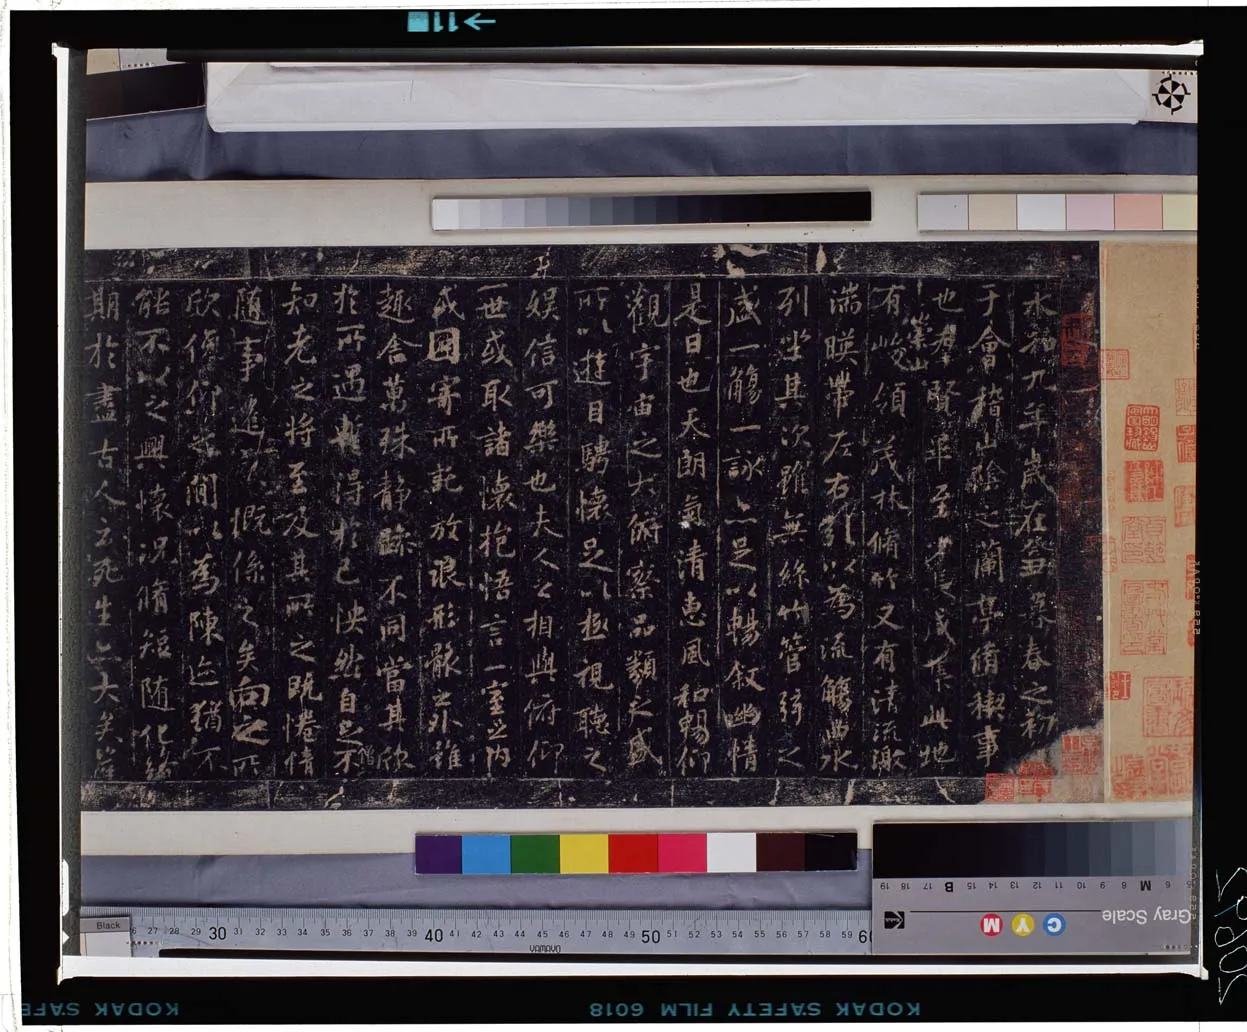 永和九年歲在癸丑暮春之初
于會稽山陰之蘭亭脩稧事
也羣賢畢至少長咸集此地
有崇山峻領茂林脩竹又有清流激
湍暎帶左右引以為流觴曲水
列坐其次雖無絲竹管弦之
盛一觴一詠亦足以暢敘幽情
是日也天朗氣清惠風和暢仰
觀宇宙之大俯察品類之盛
所以遊目騁懷足以極視聽之
娛信可樂也夫人之相與俯仰
一世或取諸懷抱悟言一室之內
或因寄所託放浪形骸之外雖
趣舍萬殊靜躁不同當其欣
於所遇暫得於己怏然自足不
知老之將至及其所之既惓情
隨事遷感慨係之矣向之所
欣俛仰之間以為陳迹猶不
能不以之興懷況脩短隨化終
期於盡古人云死生亦大矣豈
Black
27 28 29 30 31 32 33 34 35 36 37 38 39 40 41 42 43 44 45 46 47 48 49 50 51 52 53 54 55 56 57 58 59
YAMAYO
Kodak Gray Scale
C Y M
KODAK SAFETY FILM 6018
KODAK SAFE
11